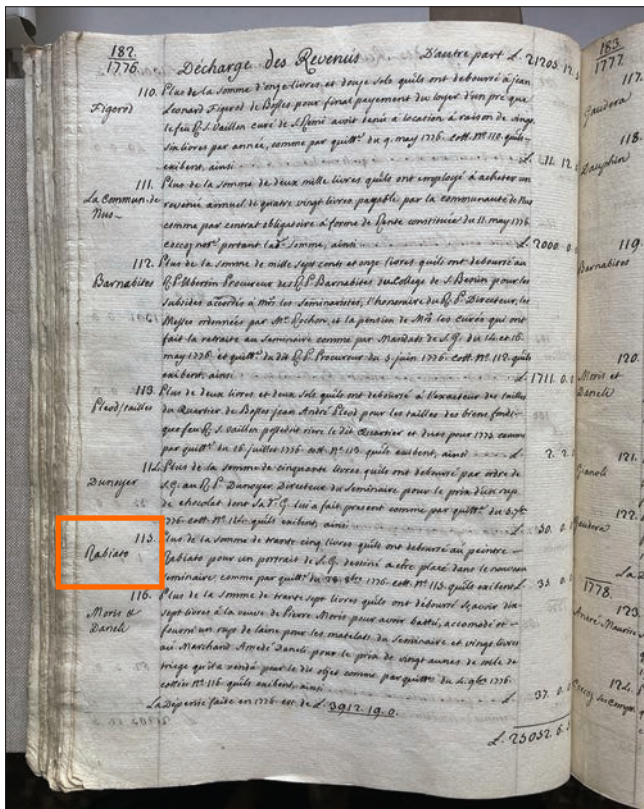 182.
1776.
Décharge des Revenus D'autre part L. 21205. 12.
110. Plus de la somme d'onze livres et douze sols quils ont deboursé a jean
Figerod
Leonard Figerod de Bosses pour final payement du loyer d'un pré que
le feu R. S. Vaillon curé de S. Remi avoit tenu à location à raison de vingt
six livres par année, comme par quitt.ce du 9. may 1776. cott. N.° 110. quils
exibent, ainsi L. 11. 12.
111. Plus de la somme de deux mille livres quils ont employé a acheter un
La Commun. de
Nus
revenu annuel de quatre vingt livres payable par la communauté de Nus
comme par contrat obligatoire à forme de Rente constituée du 11. may 1776
portant la d. somme, ainsi L. 2000. 0.
112. Plus de la somme de mille sept cents et onze livres quils ont deboursé au
Barnabites
R. P. Ubertin Procureur des R. P. Barnabites du College de S. Benin pour les
subsides accordés à M.rs les Seminaristes, l'honoraire du R. P. Directeur, les
Messes ordonnées par M.r Rochon, et la pension de M.rs les curés qui ont
fait la retraite au Seminaire comme par Mandats de S. G. du 14. et 16.
may 1776. et quitt.ce du dit R. P. Procureur du 5. juin 1776. cott. N.° 112. quils
exibent, ainsi L. 1711. 0.
113. Plus de deux livres et deux sols quils ont deboursé à l'exacteur des tailles
Pleod/tailles
du Quartier de Bosses jean André Pleod pour les tailles des biens fonds
que feu R. S. Vaillon possedoit rière le dit Quartier et dues pour 1775 comme
par quitt.ce du 16. juillet 1776. cott. N.° 113. quils exibent, ainsi L. 2. 2.
114. Plus de la somme de cinquante livres quils ont deboursé par ordre de
Dunoyer
S. G. au R. P. Dunoyer Directeur du Seminaire pour le prix d'un rup
de chocolat dont Sa d. G. lui a fait present comme par quitt.ce du 7.bre
1776. cott. N.° 114. quils exibent, ainsi L. 50. 0.
115. Plus de la somme de trante cinq livres quils ont deboursé au peintre
Rabiato
Rabiato pour un portrait de S. G. destiné a etre placé dans le nouveau
Seminaire, comme par quitt.ce du 28. 8bre 1776. cott. N.° 115. quils exibent L. 35. 0.
116. Plus de la somme de trante sept livres quils ont deboursé sçavoir dix
Moris et
Daneli
sept livres à la veuve de Pierre Moris pour avoir battu, accomodé et
fourni un rup de laine pour les matelats du Seminaire et vingt livres
au Marchand Amedé Daneli pour le prix de vingt aunes de toile de
triege qu'il a vendu pour le dit objet comme par quitt.ce du 4. 9bre 1776.
cottée N.° 116. quils exibent, ainsi L. 37. 0.
La Dépense faite en 1776. est de L. 3912. 19. 0.
L. 25052. 6.
183
1777.
117.
Gaudera
118.
Dauphin
119.
Barnabites
120.
Moris et
Daneli
121.
Gianoli
122.
Gaudera
La D
1778.
123.
André Maurice
124.